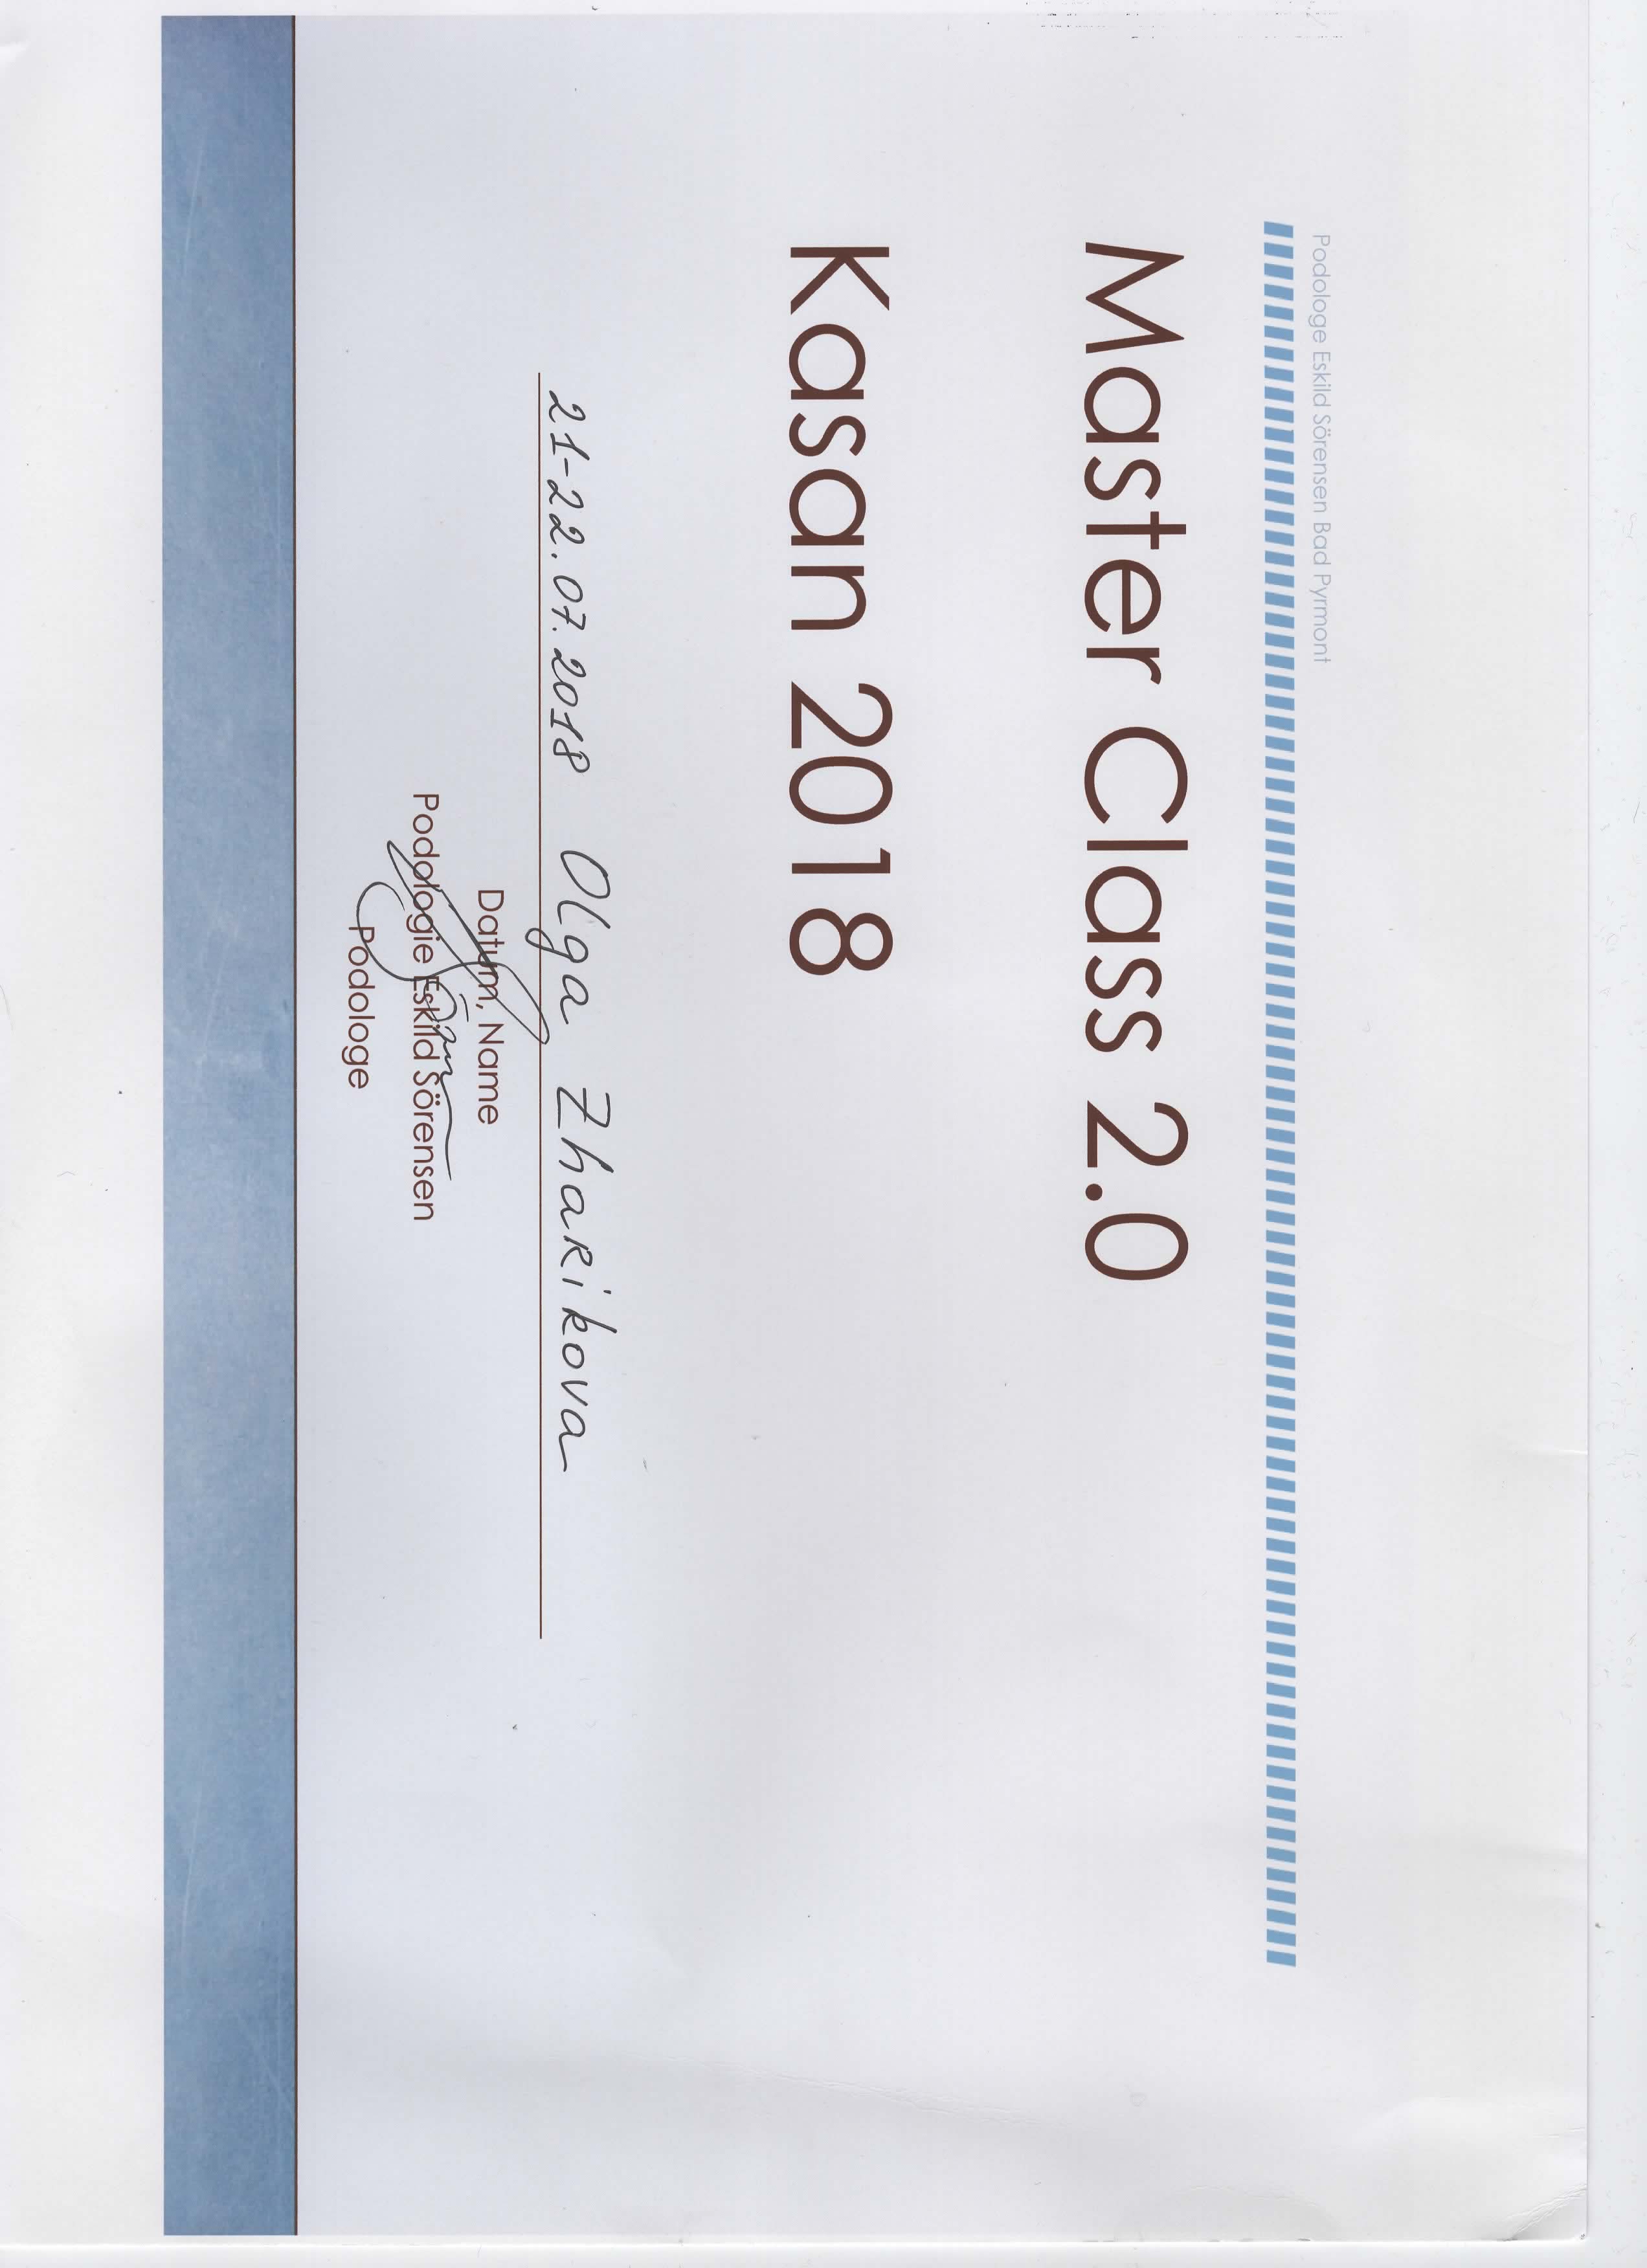 Podologe Eskild Sörensen Bad Pyrmont
Master Class 2.0
Kasan 2018
21-22.07.2018 Olga Zharikova
Datum, Name
Podologie Eskild Sörensen
Podologe